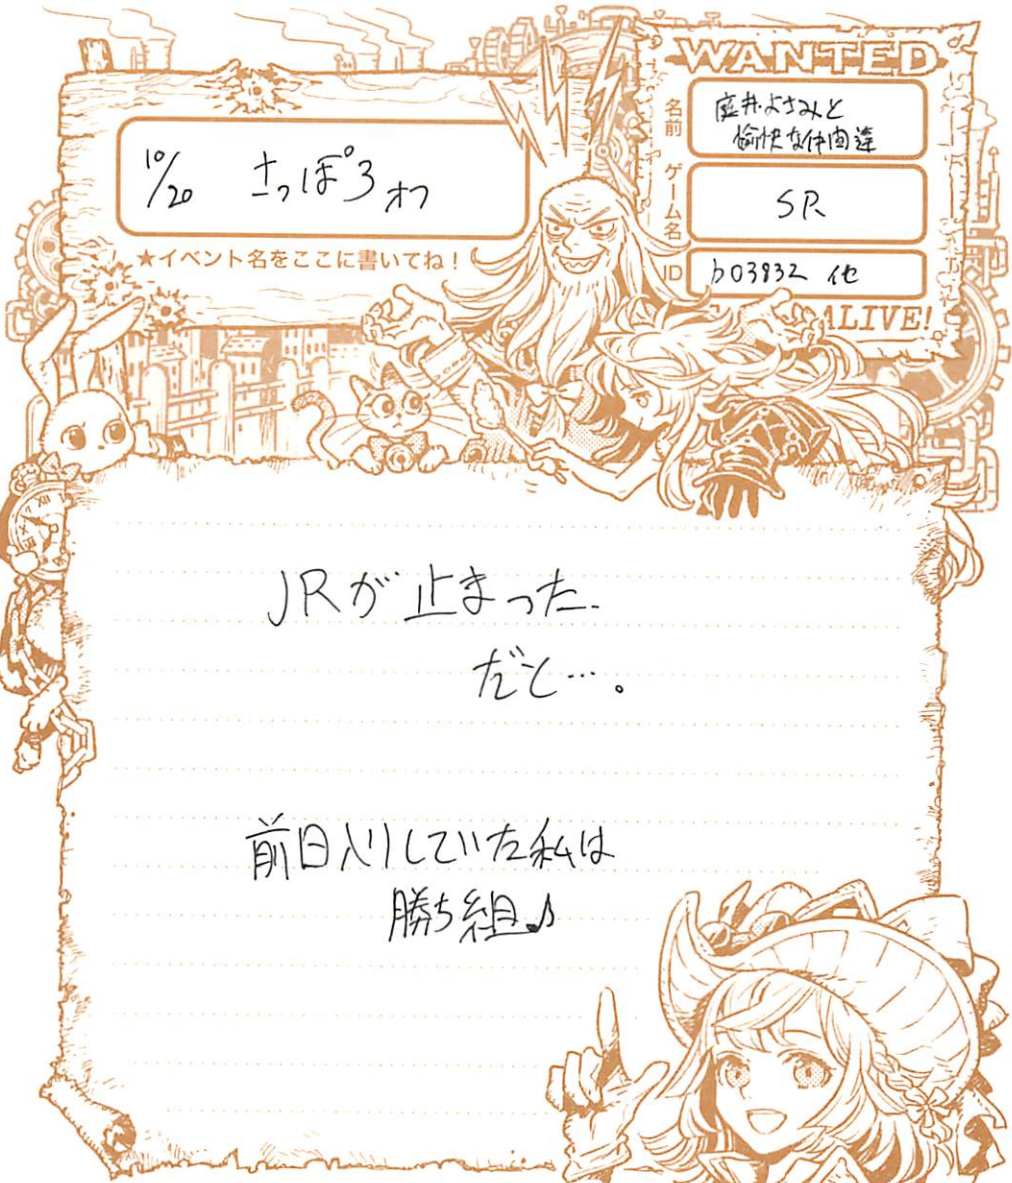 10/20 さっぽろオフ
★イベント名をここに書いてね！
WANTED
名前
庭井よさみと
愉快な仲間達
ゲーム名
SR
ID
b03832 他
ALIVE!
JRが止まった
だと…。
前日入りしていた私は
勝ち組♪